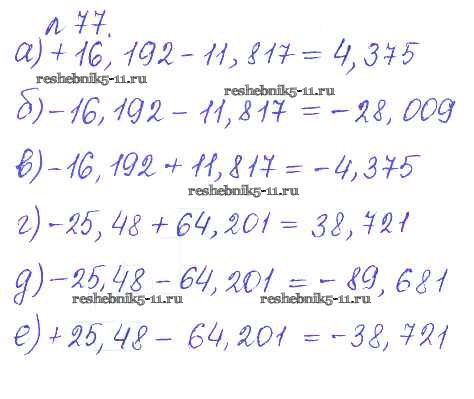 л 77.
а) + 16, 192 - 11, 817 = 4, 375
reshebnik5-11.ru reshebnik5-11.ru
б) - 16, 192 - 11, 817 = - 28, 009
в) - 16, 192 + 11, 817 = - 4, 375
reshebnik5-11.ru
г) - 25, 48 + 64, 201 = 38, 721
д) - 25,48 - 64, 201 = - 89, 681
reshebnik5-11.ru reshebnik5-11.ru
е) + 25, 48 - 64, 201 = - 38, 721